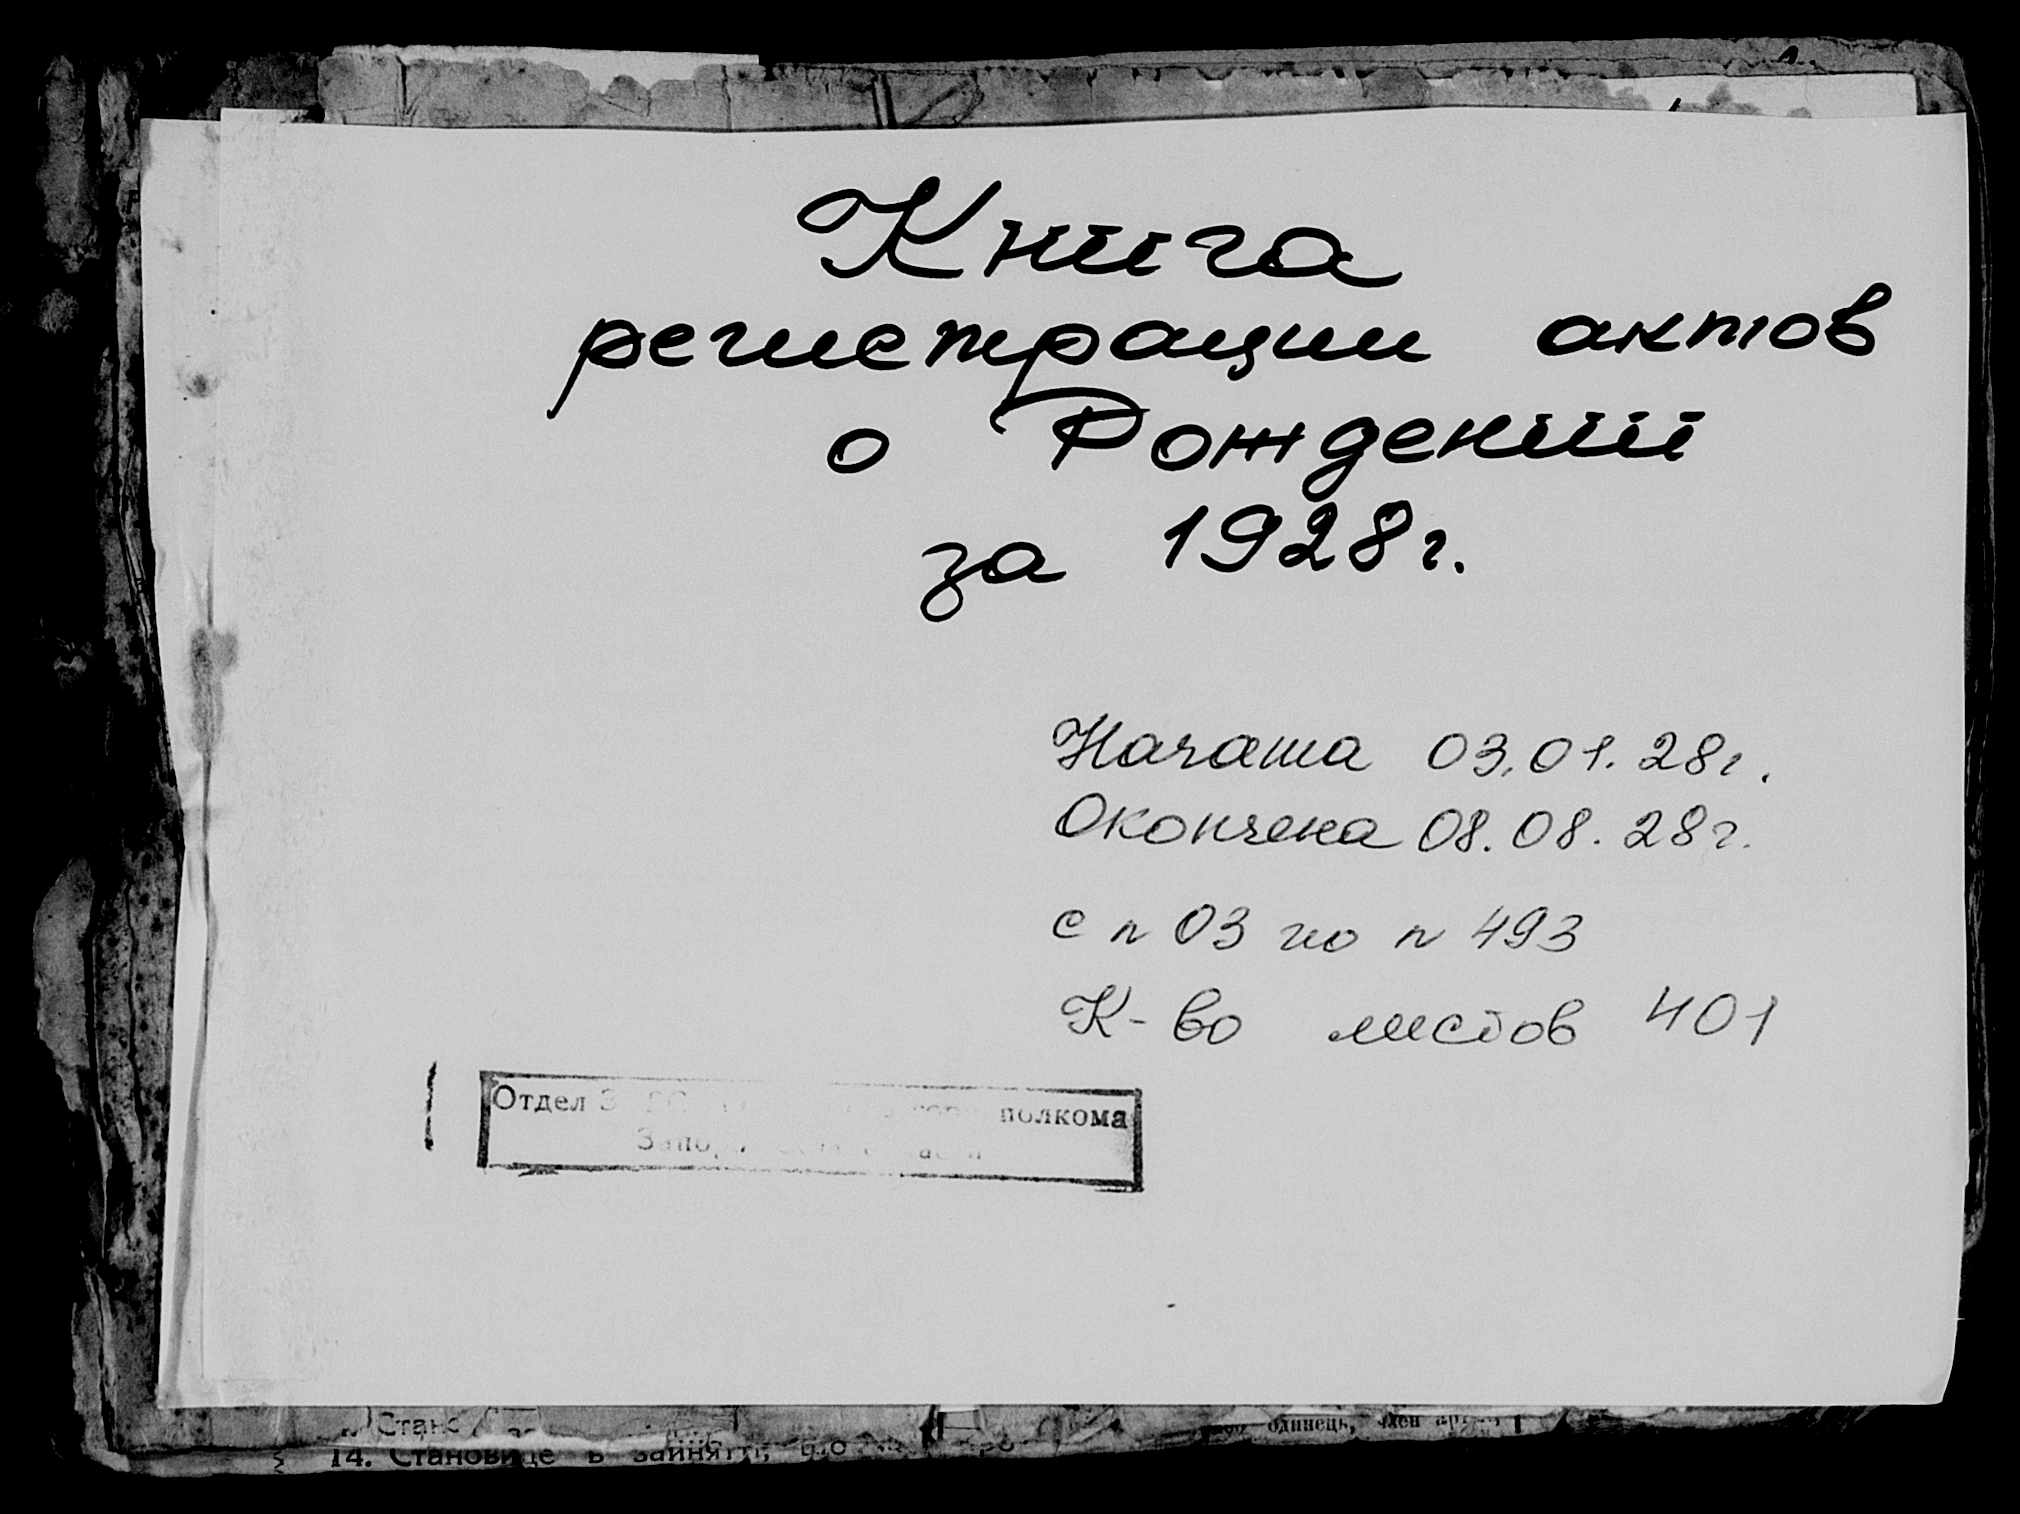 Книга
регистрации актов
о Рождении
за 1928г.
Начата 03.01.28г.
Окончена 08.08.28г.
с n 03 по n 493
К-во листов 401
Отдел полкома
14. Становище в занятті, що
одинець, член